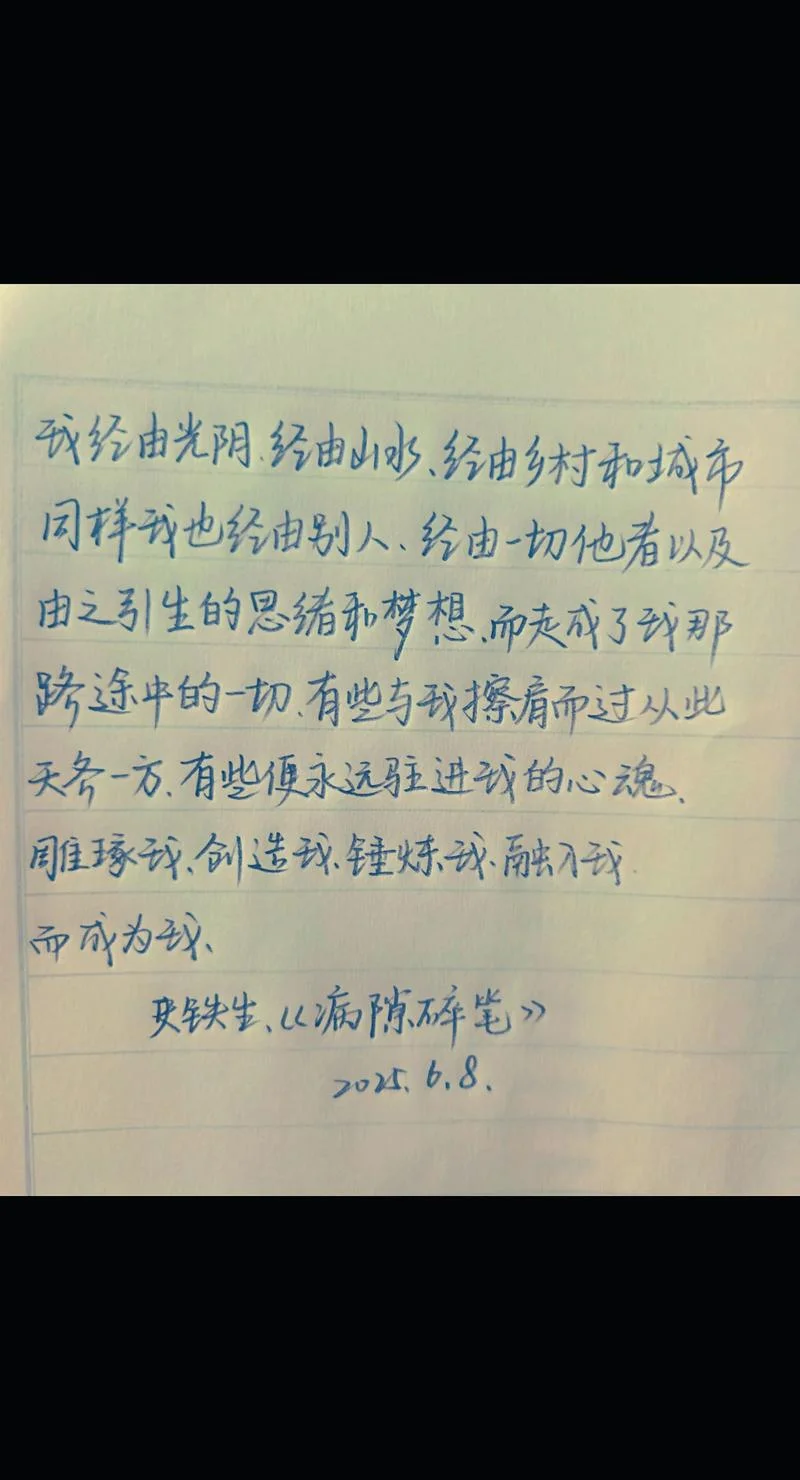 我经由光阴、经由山水、经由乡村和城市
同样我也经由别人、经由一切他者以及
由之引生的思绪和梦想、而走成了我那
路途中的一切、有些与我擦肩而过从此
天各一方、有些便永远驻进我的心魂、
雕琢我、创造我、锤炼我、融入我.
而成为我、
史铁生、《病隙碎笔》
2025.6.8.